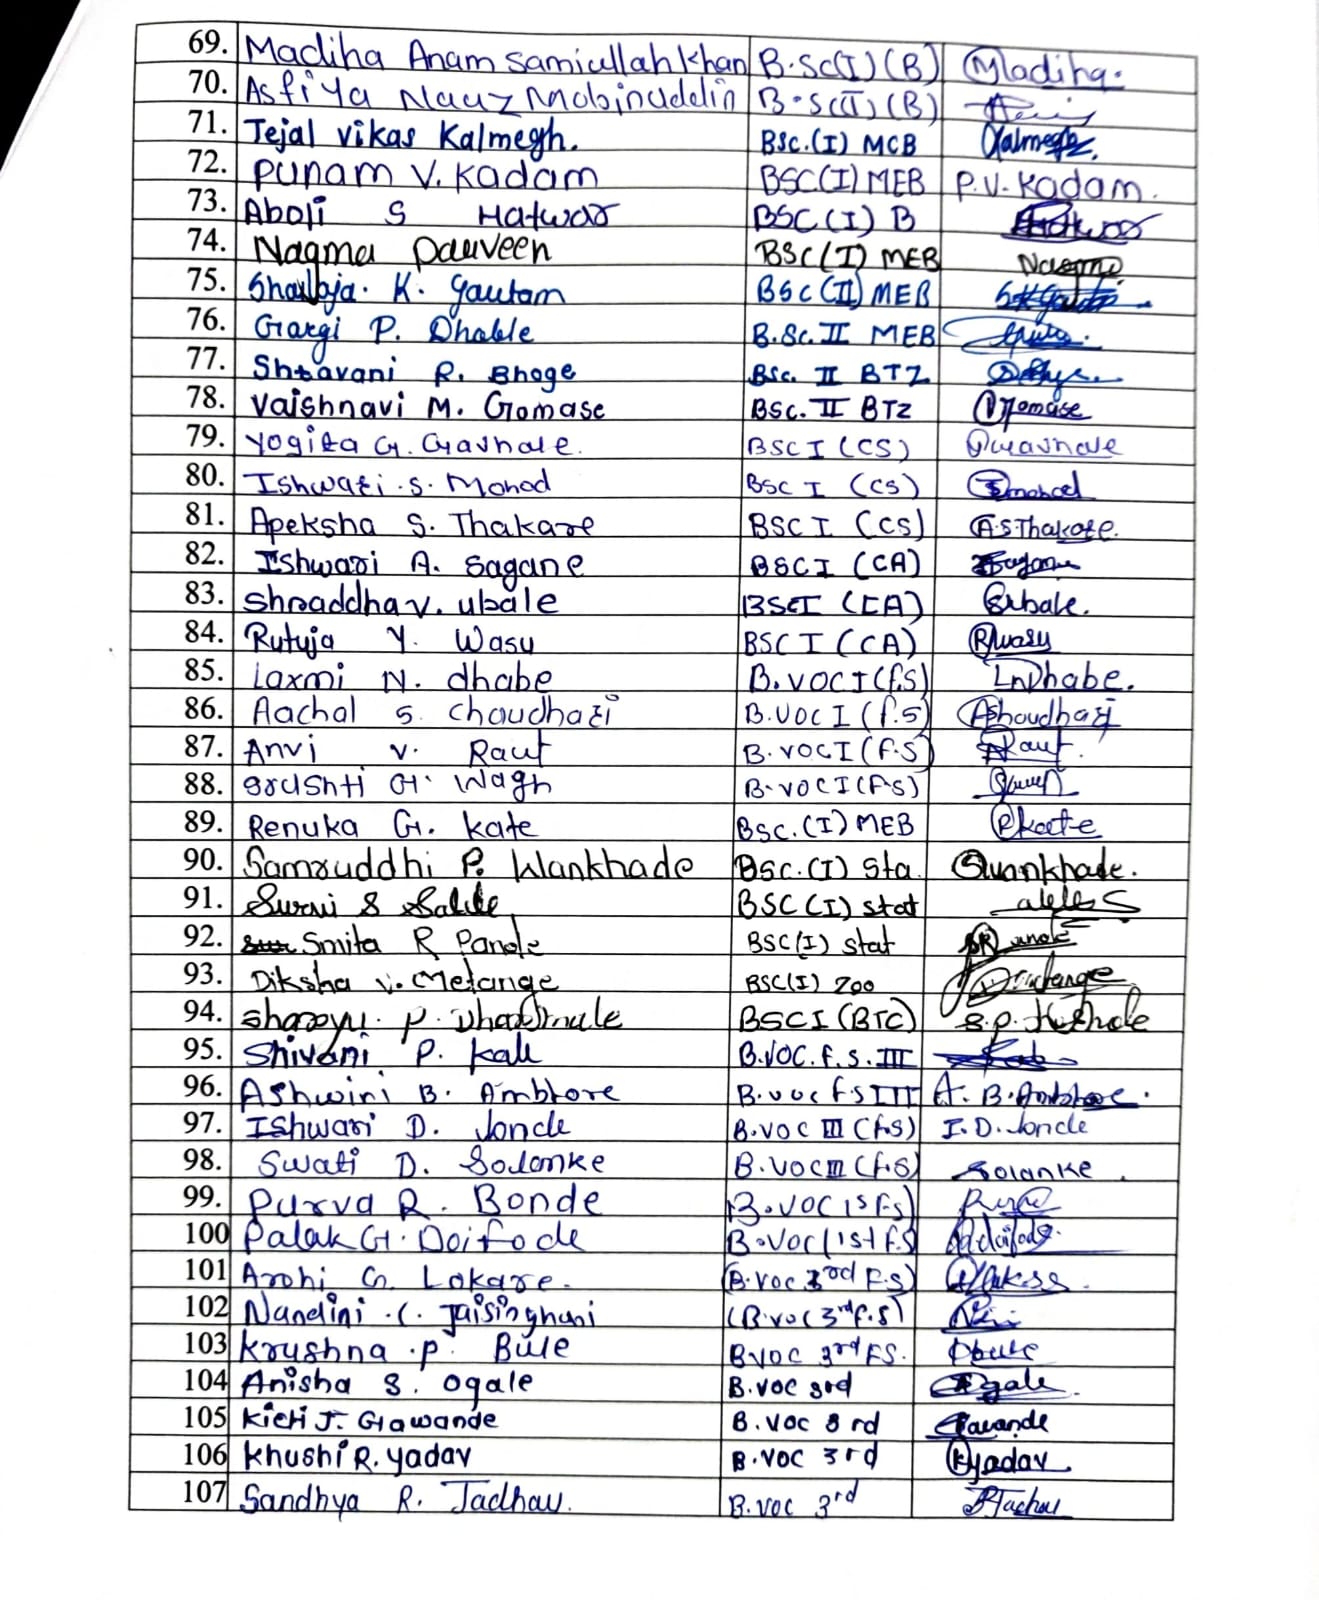 69. Madiha Anam Samiullah Khan B.Sc(I) (B) Madiha.
70. Asfiya Nauz Mobinuddin B.Sc(I) (B)
71. Tejal Vikas Kalmegh. BSc.(I) MCB Kalmegh.
72. Punam V. Kadam BSC(I) MEB P.V. Kadam.
73. Aboli S Hatwar BSC (I) B Hatwar
74. Nagma Parveen BSC(I) MEB Nagma
75. Shailaja. K. Gautam BSC(II) MEB
76. Gargi P. Dhable B.Sc. II MEB
77. Shravani R. Bhoge BSc. II BTZ
78. Vaishnavi M. Gomase BSC. II BTZ VGomase
79. Yogita G. Gavhale. BSC I (CS)
80. Ishwari .S. Mohod BSC I (CS) Imohod
81. Apeksha S. Thakare BSC I (CS) A.S Thakare.
82. Ishwari A. Sagane BSC I (CA)
83. Shraddha v. ubale BSC I (CA)
84. Rutuja Y. Wasu BSC I (CA) RWasu
85. Laxmi N. dhabe B.VOC I (f.S) LNDhabe.
86. Aachal S. Choudhari B.VOC I (f.S) AChoudhari
87. Anvi v. Raut B.VOC I (F.S) ARaut.
88. Srushti G. Wagh B.VOC I (F.S)
89. Renuka G. Kate BSC.(I) MEB RKate
90. Samruddhi P. Wankhade BSC.(I) Sta. SWankhade.
91. S BSC (I) stat
92. Smita R Pande BSC(I) stat
93. Diksha v. Metange BSC(I) Zoo
94. Sharayu. P. BSC I (BTC) S.P.
95. Shivani P. Kale B.VOC. F.S. III
96. Ashwini B. Ambhore B.voc f.S III A. B. Ambhore.
97. Ishwari D. Jonde B.VOC III (f.s) I. D. Jonde
98. Swati D. Solanke B.VOC III (f.S) Solanke.
99. Purva R. Bonde B.VOC (1st F.S)
100 Palak G. Doifode B.Voc (1st F.S)
101 Arohi G. Lokare. (B.voc 3rd F.S)
102 Nandini .C. Jaisinghani (B.voc 3rd f.S)
103 Krushna .P. Bule BVOC 3rd FS. Pbule
104 Anisha S. Ogale B.VOC 3rd Ogale.
105 Kirti J. Gawande B.VOC 3 rd Gawande
106 Khushi R. Yadav B.VOC 3rd KYadav
107 Sandhya R. Jadhav. B.VOC 3rd